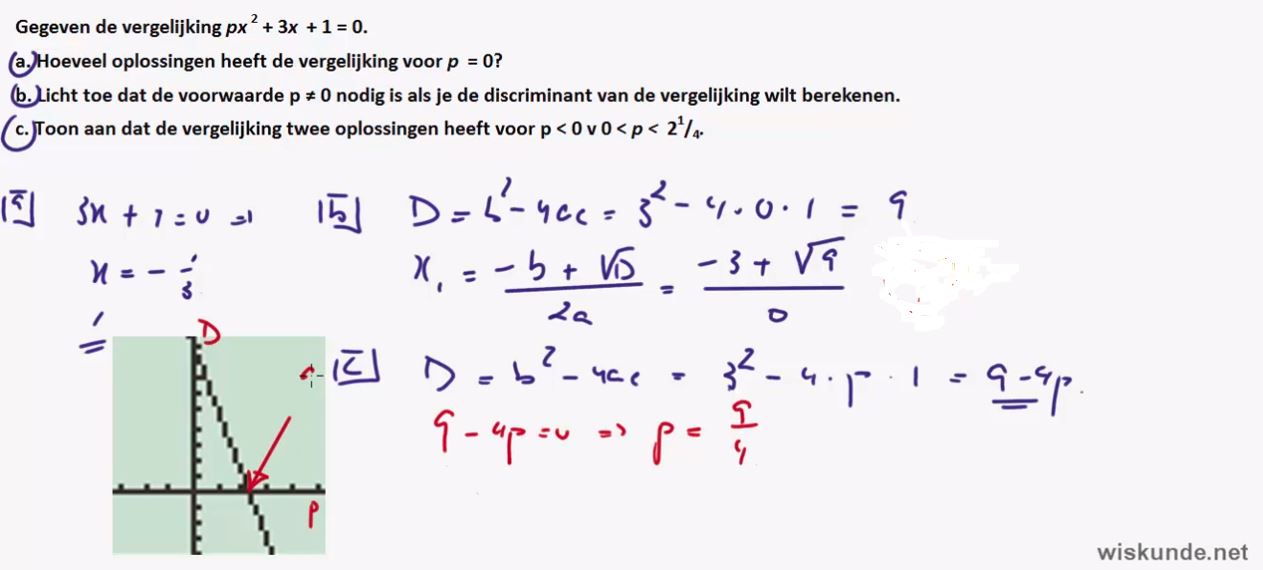 Gegeven de vergelijking px² + 3x + 1 = 0.
a. Hoeveel oplossingen heeft de vergelijking voor p = 0?
b. Licht toe dat de voorwaarde p ≠ 0 nodig is als je de discriminant van de vergelijking wilt berekenen.
c. Toon aan dat de vergelijking twee oplossingen heeft voor p < 0 v 0 < p < 2¹/₄.
a 3x + 1 = 0 ⇒
x = - 1/3
1
b D = b² - 4ac = 3² - 4 · 0 · 1 = 9
x₁ = (-b + √D)/2a = (-3 + √9)/0
c D = b² - 4ac = 3² - 4 · p · 1 = 9 - 4p
9 - 4p = 0 ⇒ p = 9/4
D
p
wiskunde.net